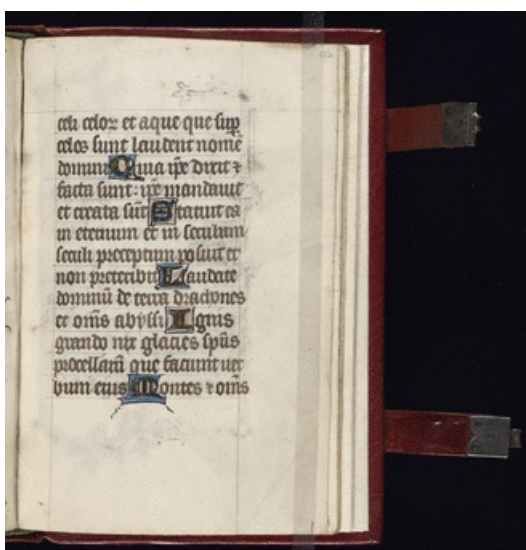 celi celoꝝ et aque que sup
celos sunt laudent nomē
domini Quia ip̄e dixit ⁊
facta sunt: ip̄e mandauit
et creata sūt Statuit ea
in eternum et in seculum
seculi preceptum posuit et
non preteribit Laudate
dominū de terra dracones
et om̄s abyssi Ignis
grando nix glacies sp̄us
procellarū que faciunt uer
bum eius Montes ⁊ om̄s